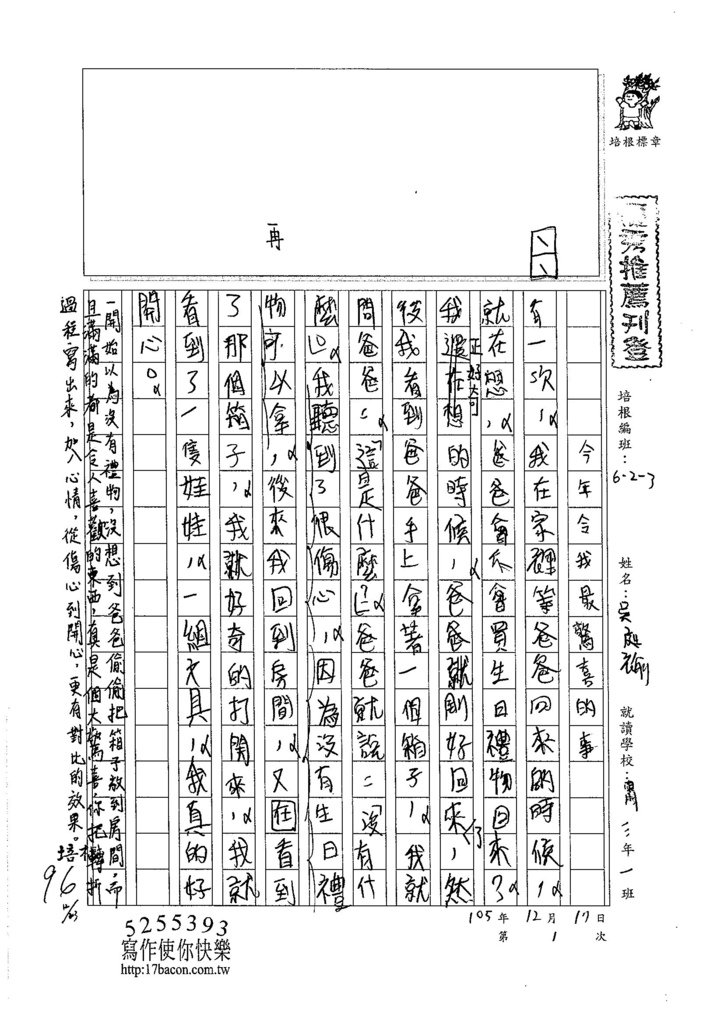 培根標章
優秀推薦刊登
培根編班：6-2-3
姓名：吳庭
就讀學校：
三年一班
105年12月17日
第1次
再
今年令我最驚喜的事
有一次，我在家裡等爸爸回來的時候，
就在想，爸爸會不會買生日禮物回來了
我還在想的時候，爸爸就剛好回來了，然
正好
後我看到爸爸手上拿著一個箱子，我就
問爸爸：「這是什麼？」爸爸就說：「沒有什
麼。」我聽到了很傷心，因為沒有生日禮
物可以拿，後來我回到房間，又在看到
了那個箱子，我就好奇的打開來，我就
看到了一隻娃娃，一組文具，我真的好
開心。
一開始以為沒有禮物，沒想到爸爸偷偷把箱子放到房間，而
且滿滿的都是令人喜歡的東西，真是個大驚喜！你把轉折
過程寫出來，加入心情，從傷心到開心，更有對比的效果。培根
96
5255393
寫作使你快樂
http:17bacon.com.tw